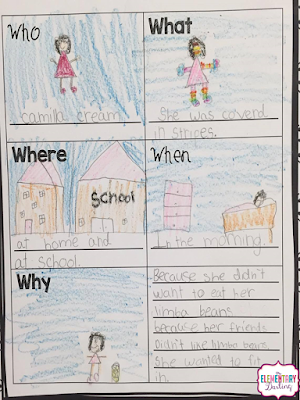 Who
camilla cream.
What
She was coverd
in strices.
Where
School
at home and
at school.
When
In the morning.
Why
Because she didn't
want to eat her
limba beans
because her friends
didn't like limba beans.
She wanted to fit
in.
The
ELEMENTARY
Darling